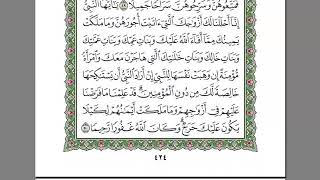 فَمَتِّعُوهُنَّ وَسَرِّحُوهُنَّ سَرَاحًا جَمِيلًا ﴿٤٩﴾ يَٰٓأَيُّهَا ٱلنَّبِيُّ
إِنَّآ أَحْلَلْنَا لَكَ أَزْوَٰجَكَ ٱلَّٰتِيٓ ءَاتَيْتَ أُجُورَهُنَّ وَمَا مَلَكَتْ
يَمِينُكَ مِمَّآ أَفَآءَ ٱللَّهُ عَلَيْكَ وَبَنَاتِ عَمِّكَ وَبَنَاتِ عَمَّٰتِكَ
وَبَنَاتِ خَالِكَ وَبَنَاتِ خَٰلَٰتِكَ ٱلَّٰتِي هَاجَرْنَ مَعَكَ وَٱمْرَأَةً
مُّؤْمِنَةً إِن وَهَبَتْ نَفْسَهَا لِلنَّبِيِّ إِنْ أَرَادَ ٱلنَّبِيُّ أَن يَسْتَنكِحَهَا
خَالِصَةً لَّكَ مِن دُونِ ٱلْمُؤْمِنِينَ قَدْ عَلِمْنَا مَا فَرَضْنَا
عَلَيْهِمْ فِيٓ أَزْوَٰجِهِمْ وَمَا مَلَكَتْ أَيْمَٰنُهُمْ لِكَيْلَا
يَكُونَ عَلَيْكَ حَرَجٌ وَكَانَ ٱللَّهُ غَفُورًا رَّحِيمًا ﴿٥٠﴾
٤٢٤